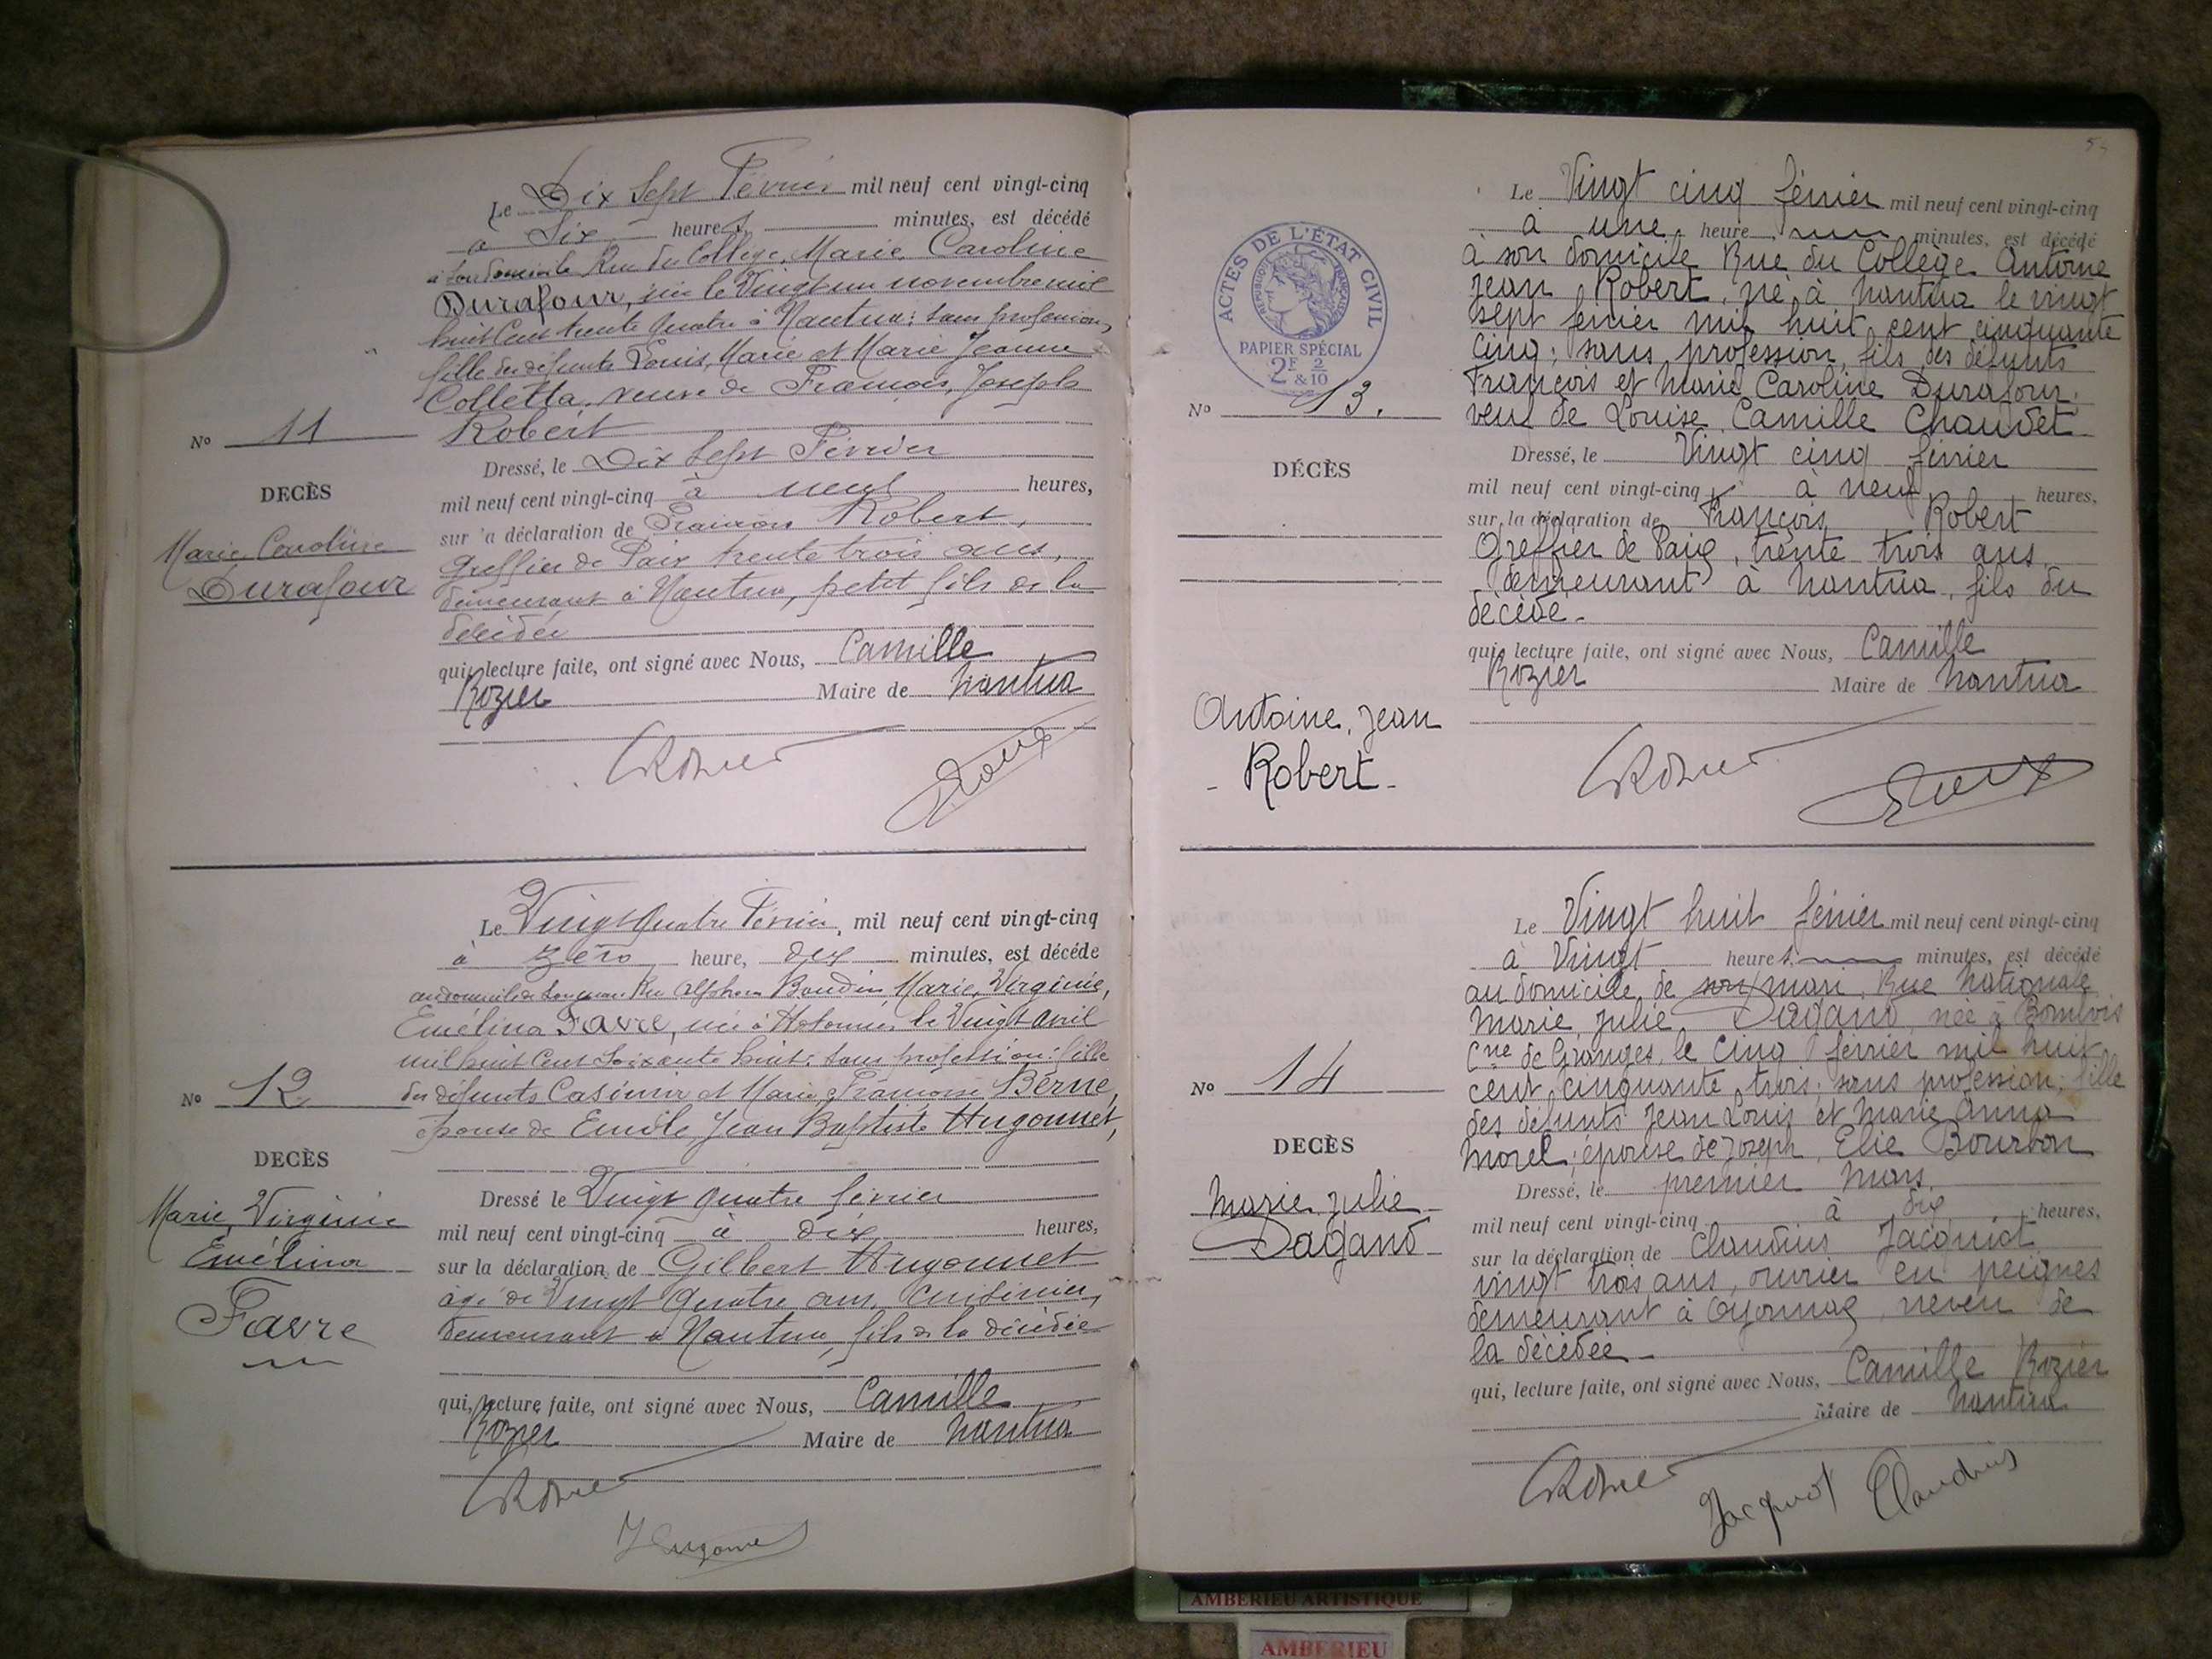 Le Dix Sept Février mil neuf cent vingt-cinq
à Six heures minutes, est décédé
à son domicile Rue du Collège, Marie Caroline
Durafour, née le Vingt un novembre mil
huit Cent trente quatre à Nantua; sans profession,
fille des défunts Louis, Marie et Marie Jeanne
Colletta, veuve de François, Joseph
Robert
No 11
DECÈS
Marie Caroline
Durafour
Dressé, le Dix Sept Février
mil neuf cent vingt-cinq à neuf heures,
sur la déclaration de François Robert,
greffier de Paix trente trois ans,
demeurant à Nantua, petit fils de la
décédée
qui, lecture faite, ont signé avec Nous, Camille
Rozier Maire de Nantua
Le Vingt quatre Février, mil neuf cent vingt-cinq
à zéro heure, dix minutes, est décédé
au domicile de son mari Rue Alphonse Baudin Marie, Virginie,
Emélina Favre, née à Hotonnes le Vingt avril
mil huit Cent Soixante huit; sans profession; fille
des défunts Casimir et Marie Françoise Berne,
épouse de Emile, Jean Baptiste Hugonnet,
No 12
DECÈS
Marie, Virginie
Emélina
Favre
Dressé le Vingt quatre février
mil neuf cent vingt-cinq à dix heures,
sur la déclaration de Gilbert Hugonnet
âgé de Vingt quatre ans, cuisinier,
demeurant à Nantua, fils de la décédée
qui, lecture faite, ont signé avec Nous, Camille
Rozier Maire de Nantua
ACTES DE L'ÉTAT CIVIL
RÉPUBLIQUE FRANÇAISE
PAPIER SPÉCIAL
2F 2/10
&
Le Vingt cinq février mil neuf cent vingt-cinq
à une heure minutes, est décédé
à son domicile Rue du Collège Antoine
Jean Robert, né à Nantua le vingt
sept février mil huit cent cinquante
cinq; sans profession, fils des défunts
François et Marie Caroline Durafour.
veuf de Louise Camille Chaudet
No 13.
DÉCÈS
Antoine, Jean
- Robert -
Dressé, le Vingt cinq février
mil neuf cent vingt-cinq à neuf heures,
sur la déclaration de François Robert
Greffier de Paix, trente trois ans
demeurant à Nantua, fils du
décédé -
qui, lecture faite, ont signé avec Nous, Camille
Rozier Maire de Nantua
Le Vingt huit février mil neuf cent vingt-cinq
à Vingt heures minutes, est décédé
au domicile de son mari, Rue Nationale
Marie, Julie Dagand, née à Bombois
Cne de Granges, le cinq février mil huit
cent cinquante trois; sans profession; fille
des défunts Jean Louis et Marie Anna
Morel; épouse de Joseph, Elie Bourbon
No 14
DECÈS
Marie, Julie
Dagand
Dressé, le premier Mars
mil neuf cent vingt-cinq à dix heures,
sur la déclaration de Claudius Jacquiot
vingt trois ans, ouvrier en peignes
demeurant à Oyonnax, neveu de
la décédée -
qui, lecture faite, ont signé avec Nous, Camille Rozier
Maire de Nantua
Claudius
AMBERIEU ARTISTIQUE
AMBERIEU